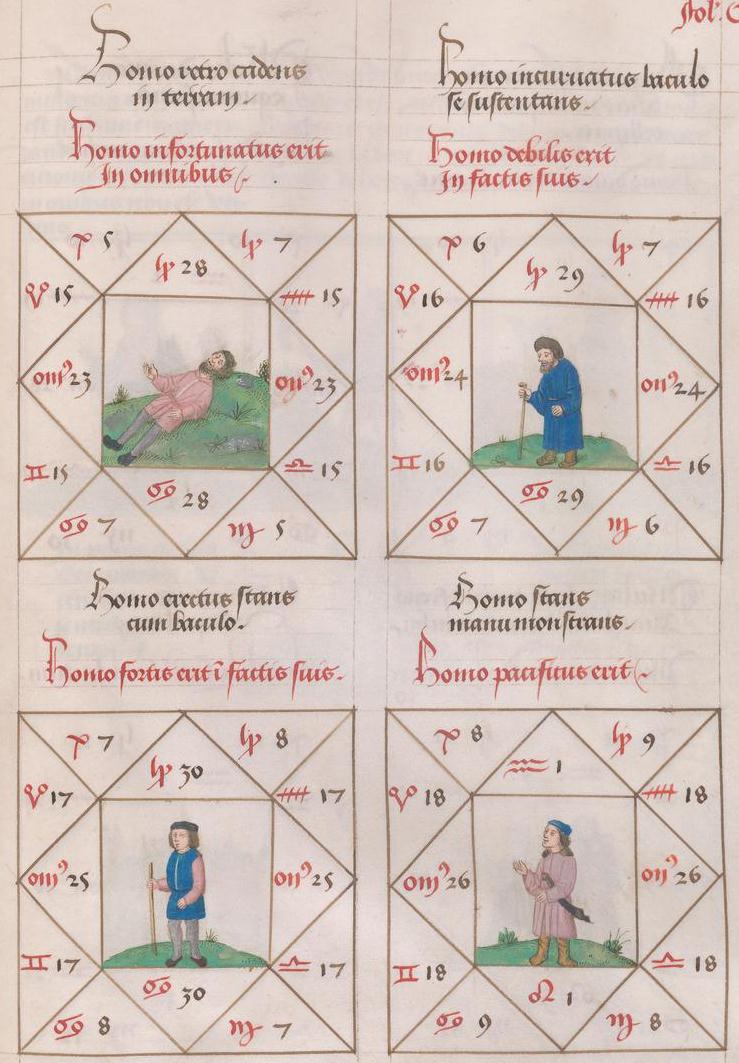 fol. C
Homo retro cadens
in terram.
Homo infortunatus erit
In omnibus
♓ 5
♑ 28
♑ 7
♉ 15
♐ 15
om⁹ 23
on⁹ 23
♊ 15
♎ 15
♋ 28
♋ 7
♏ 5
Homo incuruatus baculo
se sustentans.
Homo debilis erit
In factis suis.
♓ 6
♑ 29
♑ 7
♉ 16
♐ 16
om⁹ 24
on⁹ 24
♊ 16
♎ 16
♋ 29
♋ 7
♏ 6
Homo erectus stans
cum baculo.
Homo fortis erit ī factis suis.
♓ 7
♑ 30
♑ 8
♉ 17
♐ 17
om⁹ 25
on⁹ 25
♊ 17
♎ 17
♋ 30
♋ 8
♏ 7
Homo stans
manu monstrans.
Homo pacificus erit
♓ 8
♒ 1
♑ 9
♉ 18
♐ 18
om⁹ 26
on⁹ 26
♊ 18
♎ 18
♌ 1
♋ 9
♏ 8